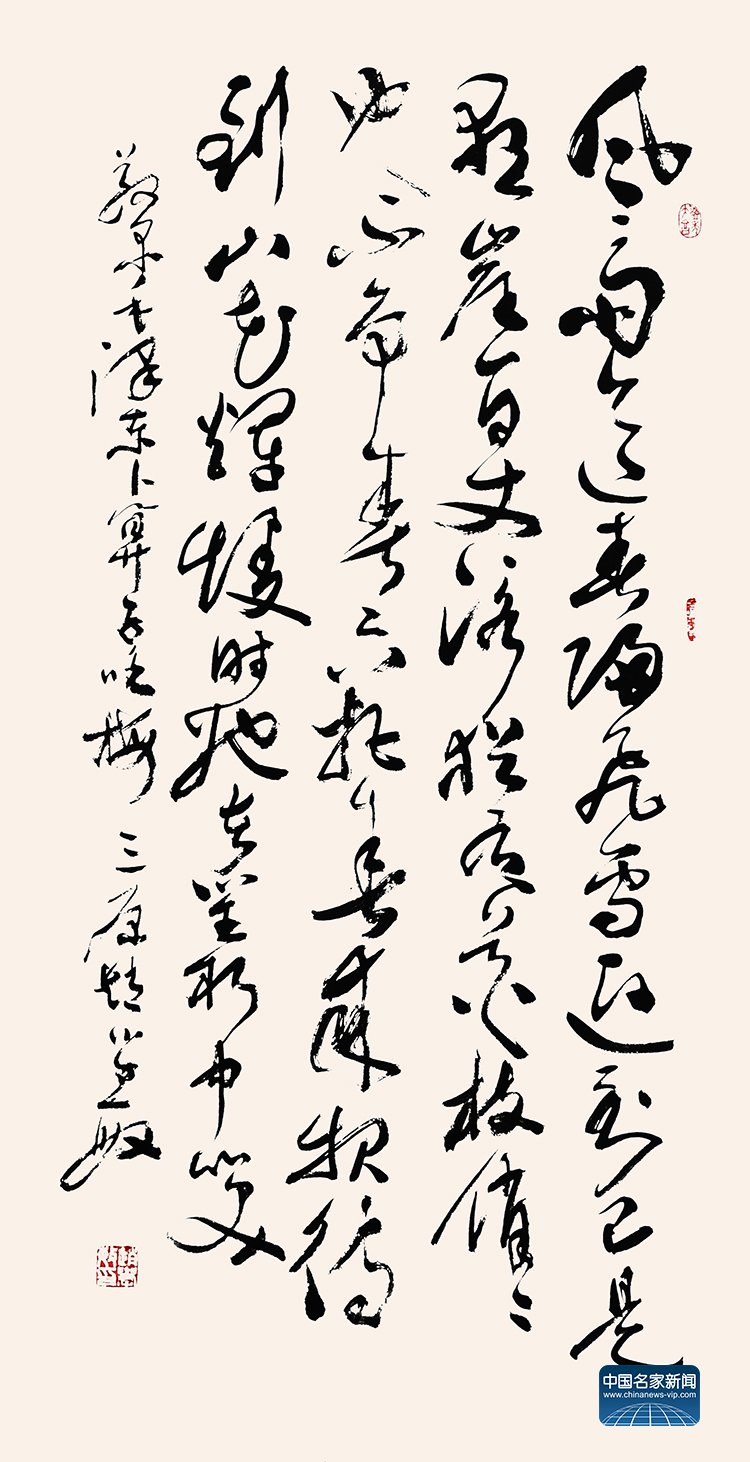 风雨送春归飞雪迎到已是
悬崖百丈冰犹有花枝俏〻
也不争春只把春来报待
到山花烂漫时她在丛中笑
敬录毛泽东卜算子咏梅 三原
中国名家新闻
www.chinanews-vip.com